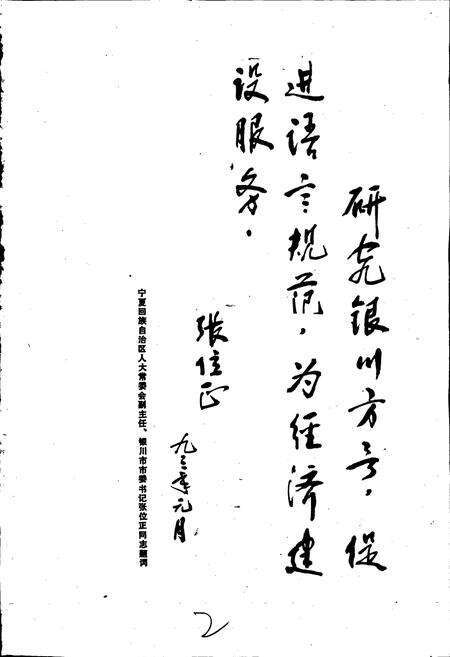 研究银川方言,促
进语言规范,为经济建
设服务.
张位正
九三年元月
宁夏回族自治区人大常委会副主任、银川市市委书记张位正同志题词
2